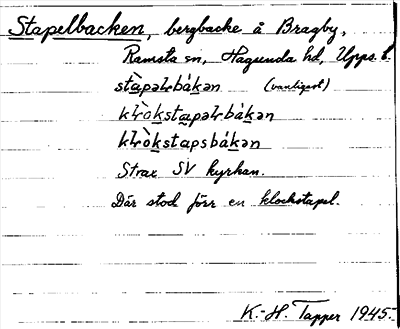 Stapelbacken, bergbacke å Bragby,
Ramsta sn, Hagunda hd, Upps. l.
stàpəlrbákən (vanligast)
klròkstapəlrbákən
klròkstapsbákən
Strax SV kyrkan.
Där stod förr en klockstapel.
K.-H. Tapper 1945.